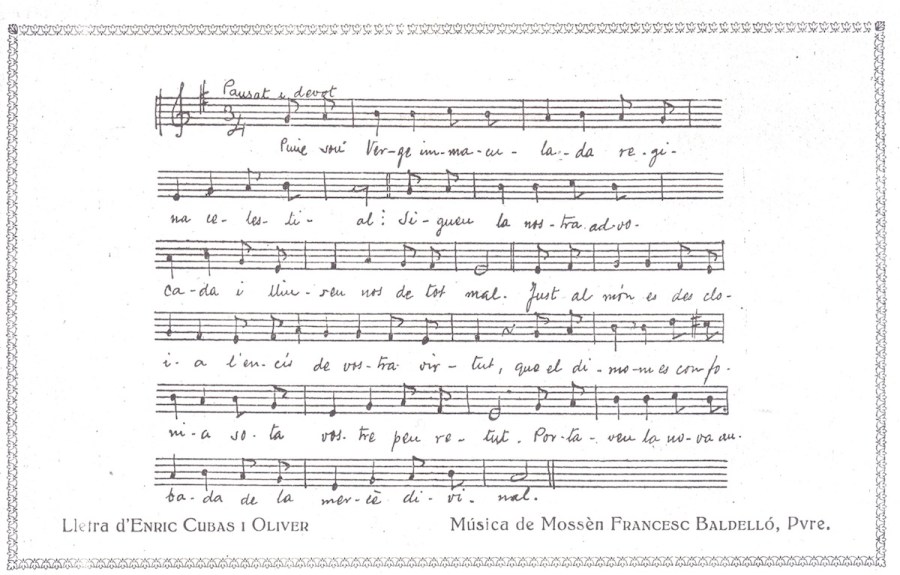 Pausat i devot
3/4
Puix sou Ver-ge im-ma-cu- la-da re-gi-
na ce-les-ti- al: Si-gueu la nos-tra ad-vo-
ca-da i lliu-reu nos de tot mal. Just al món es des clo-
i-a l'en-cís de vos-tra vir-tut, que el di-mo-ni es con-fo-
ni-a so-ta vos-tre peu re-tut. Por-ta-veu la no-va au-
ba-da de la mer-cè di-vi-nal.
Lletra d'ENRIC CUBAS I OLIVER
Música de Mossèn FRANCESC BALDELLÓ, Pvre.